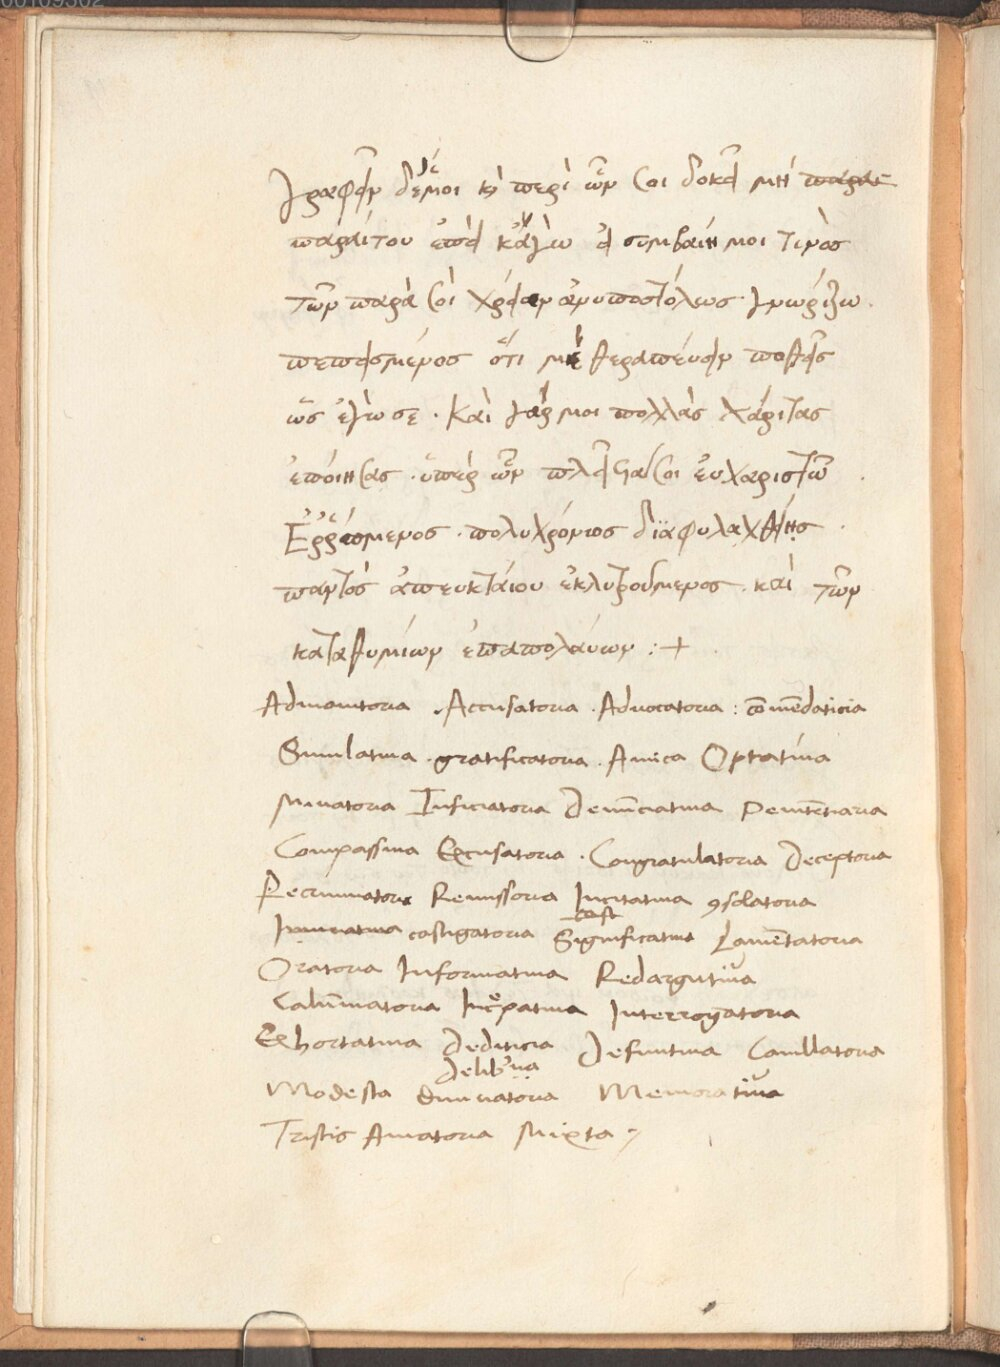 Γράφειν δέ μοι κὴ περὶ ὧν σοι δοκεῖ μὴ παραι
παραίτου ἐπεὶ κἀγὼ εἰ συμβαίη μοι τινὸς
τῶν παρὰ σοὶ χρείαν ἀνυποστόλως γνωρίζω.
πεπεισμένος ὅτι μὲ θεραπεύειν ποθεῖς
ὡς ἐγώ σε. Καὶ γάρ μοι πολλὰς χάριτας
ἐποίησας. ὑπὲρ ὧν σοι ἐυχαριστῶ.
Ἐρρωμενος. πολυχρόνιος διαφυλαχθείης.
παντὸς ἀπευκταίου ἐκλυτρούμενος. καὶ τῶν
καταθυμίων ἐπαπολάυων :+
Admonitoria . Accusatoria . Advocatoria : cōmēdaticia
Simulatiua . gratificatoria . Amica Optatiua
Minatoria Inficiatoria Denūciatiua Penitētiaria
Compassiua Excusatoria . Congratulatoria Deceptoria
Recriminatoria Remissoria Incitatiua ꝯsolatoria
castigatoria Significatiua Lamētatoria
Oratoria Informatiua Redargutiva
Calūniatoria Increpatiua Interrogatoria
Exhortatiua Dediticia Defuntiua Cauillatoria
Delib'iua
Modesta Memorativa
Tristis Amatoria Mixta